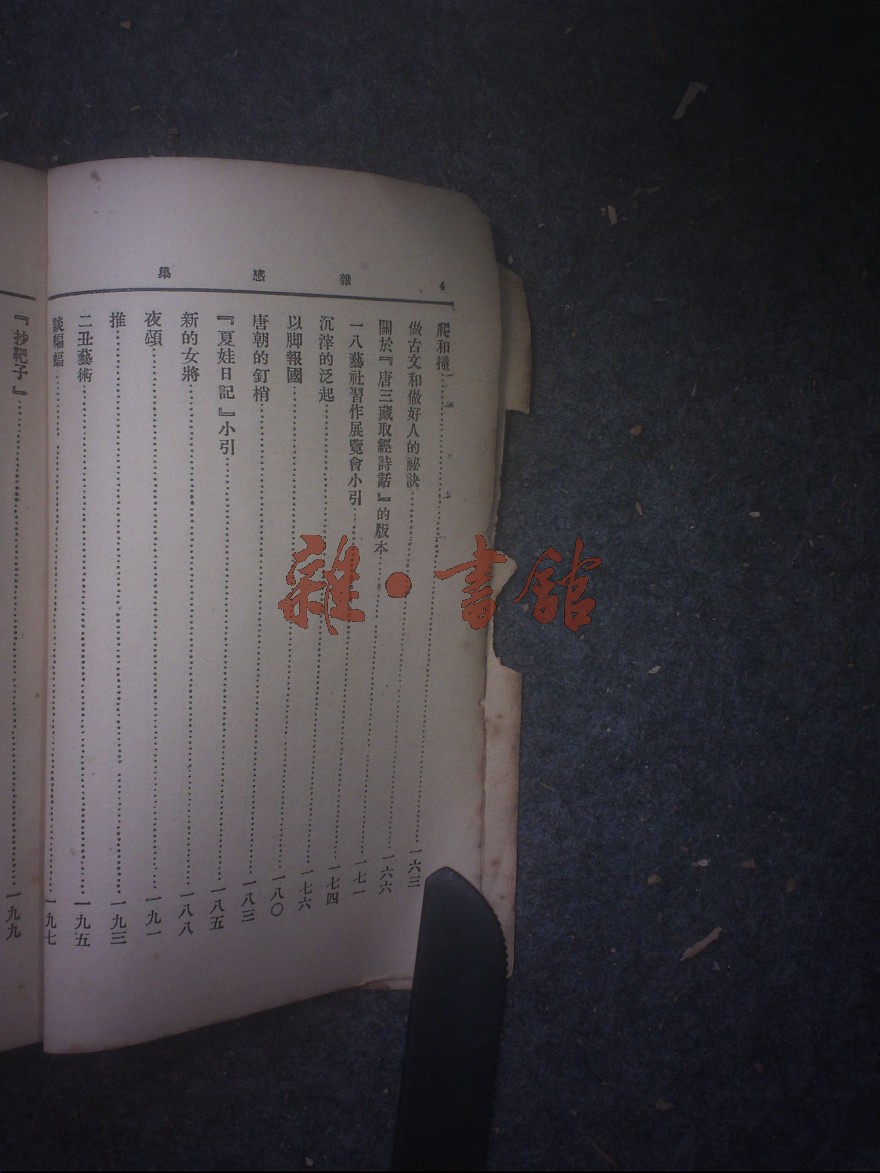 4
雜感集
爬和撞
做古文和做好人的祕訣……一六三
關於『唐三藏取經詩話』的版本……一六六
一八藝社習作展覽會小引……一七一
沉滓的泛起……一七四
以脚報國……一七六
唐朝的釘梢……一八〇
『夏娃日記』小引……一八三
新的女將……一八五
夜頌……一八八
推……一九一
二丑藝術……一九三
談蝙蝠……一九五
『抄靶子』……一九七
一九九
雜·書館